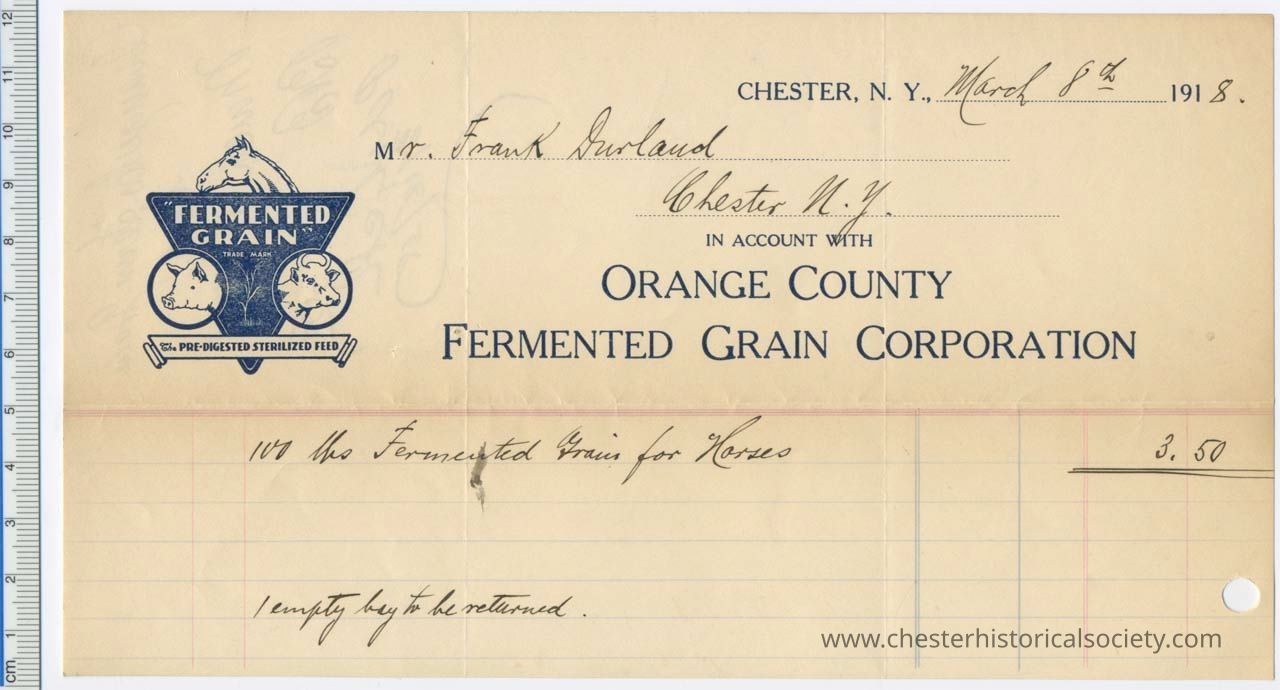 CHESTER, N. Y., March 8th 1918.
Mr. Frank Durland
Chester N. Y.
IN ACCOUNT WITH
ORANGE COUNTY
FERMENTED GRAIN CORPORATION
"FERMENTED
GRAIN"
TRADE MARK
The PRE-DIGESTED STERILIZED FEED
100 lbs Fermented Grain for Horses 3. 50
1 empty bag to be returned.
www.chesterhistoricalsociety.com
12
11
10
9
8
7
6
5
4
3
2
1
cm.